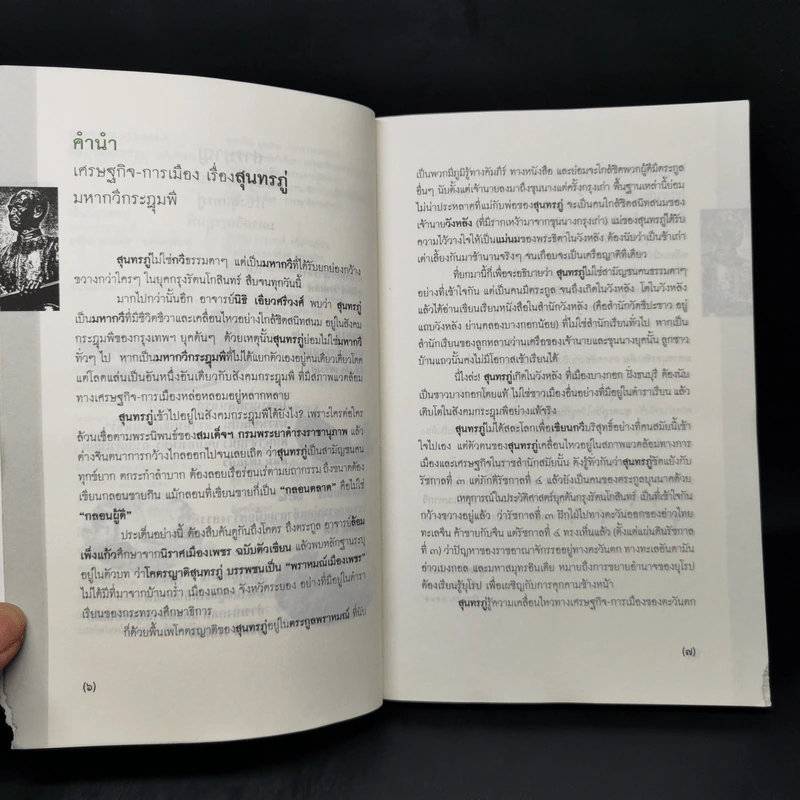 คำนำ
เศรษฐกิจ-การเมือง เรื่องสุนทรภู่
มหากวีกระฎุมพี
สุนทรภู่ไม่ใช่กวีธรรมดาๆ แต่เป็นมหากวีที่ได้รับยกย่องกว้าง
ขวางกว่าใครๆ ในยุคกรุงรัตนโกสินทร์ สืบจนทุกวันนี้
มากไปกว่านั้นอีก อาจารย์นิธิ เอียวศรีวงศ์ พบว่า สุนทรภู่
เป็นมหากวีที่มีชีวิตชีวาและเคลื่อนไหวอย่างใกล้ชิดสนิทสนม อยู่ในสังคม
กระฎุมพีของกรุงเทพฯ ยุคต้นๆ ด้วยเหตุนั้นสุนทรภู่ย่อมไม่ใช่มหากวี
ทั่วๆ ไป หากเป็นมหากวีกระฎุมพีที่ไม่ได้แยกตัวเองอยู่คนเดียวเดี่ยวโดด
แต่โลดแล่นเป็นอันหนึ่งอันเดียวกับสังคมกระฎุมพี ที่มีสภาพแวดล้อม
ทางเศรษฐกิจ-การเมืองหล่อหลอมอยู่หลากหลาย
สุนทรภู่เข้าไปอยู่ในสังคมกระฎุมพีได้ยังไง? เพราะใครต่อใคร
ล้วนเชื่อตามพระนิพนธ์ของสมเด็จฯ กรมพระยาดำรงราชานุภาพ แล้ว
ต่างจินตนาการกว้างไกลออกไปจนเลยเถิด ว่าสุนทรภู่เป็นสามัญชนคน
ทุกข์ยาก ตกระกำลำบาก ต้องลอยเรือร่อนเร่ตามยถากรรม ถึงขนาดต้อง
เขียนกลอนขายกิน แม้กลอนที่เขียนขายก็เป็น “กลอนตลาด” คือไม่ใช่
“กลอนผู้ดี”
ประเด็นอย่างนี้ ต้องสืบค้นดูกันถึงโคตร ถึงตระกูล อาจารย์ล้อม
เพ็งแก้วศึกษาจากนิราศเมืองเพชร ฉบับตัวเขียน แล้วพบหลักฐานระบุ
อยู่ในตัวบท ว่าโคตรญาติสุนทรภู่ บรรพชนเป็น “พราหมณ์เมืองเพชร”
ไม่ได้มีที่มาจากบ้านกร่ำ เมืองแกลง จังหวัดระยอง อย่างที่มีอยู่ในตำรา
เรียนของกระทรวงศึกษาธิการ
ก็ด้วยพื้นเพโคตรญาติของสุนทรภู่อยู่ในตระกูลพราหมณ์ ที่นับ
(๖)
เป็นพวกมีภูมิรู้ทางคัมภีร์ ทางหนังสือ และย่อมจะใกล้ชิดพวกผู้ดีมีตระกูล
อื่นๆ นับตั้งแต่เจ้านายลงมาถึงขุนนางแต่ครั้งกรุงเก่า พื้นฐานเหล่านี้ย่อม
ไม่น่าประหลาดที่แม่กับพ่อของสุนทรภู่ จะเป็นคนใกล้ชิดสนิทสนมของ
เจ้านายวังหลัง (ที่มีรากเหง้ามาจากขุนนางกรุงเก่า) แม่ของสุนทรภู่ได้รับ
ความไว้วางใจให้เป็นแม่นมของพระธิดาในวังหลัง ต้องนับว่าเป็นข้าเก่า
เต่าเลี้ยงกันมาช้านานจริงๆ จนเกือบจะเป็นเครือญาติที่เดียว
ที่ยกมานี้ก็เพื่อจะอธิบายว่า สุนทรภู่ไม่ใช่สามัญชนคนธรรมดาๆ
อย่างที่เข้าใจกัน แต่เป็นคนเกิดในมีตระกูล จนถึงเกิดในวังหลัง โตในวังหลัง
แล้วได้อ่านเขียนเรียนหนังสือในสำนักวังหลัง (คือสำนักวัดชีปะขาว อยู่
แถบวังหลัง ย่านคลองบางกอกน้อย) ที่ไม่ใช่สำนักเรียนทั่วไป หากเป็น
สำนักเรียนของลูกหลานว่านเครือของเจ้านายและขุนนางยุคนั้น ลูกชาว
บ้านแถวนั้นคงไม่มีโอกาสเข้าเรียนได้
นี่ไงล่ะ! สุนทรภู่เกิดในวังหลัง ที่เมืองบางกอก ฝั่งธนบุรี ต้องนับ
เป็นชาวบางกอกโดยแท้ ไม่ใช่ชาวเมืองอื่นอย่างที่มีอยู่ในตำราเรียน แล้ว
เติบโตในสังคมกระฎุมพีอย่างแท้จริง
สุนทรภู่ไม่ได้สละโลกเพื่อเขียนกวีบริสุทธิ์อย่างที่คนสมัยนี้เข้า
ใจไปเอง แต่ตัวตนของสุนทรภู่เคลื่อนไหวอยู่ในสภาพแวดล้อมทางการ
เมืองและเศรษฐกิจในราชสำนักสมัยนั้น ดังรู้ทั่วกันว่าสุนทรภู่ขัดแย้งกับ
รัชกาลที่ ๓ แต่ภักดีรัชกาลที่ ๔ แล้วยังเป็นคนของตระกูลบุนนาคด้วย
เหตุการณ์ในประวัติศาสตร์ยุคต้นกรุงรัตนโกสินทร์ เป็นที่เข้าใจกัน
กว้างขวางอยู่แล้ว ว่ารัชกาลที่ ๓ ฝักใฝ่ไปทางตะวันออกของอ่าวไทย
ทะเลจีน ค้าขายกับจีน แต่รัชกาลที่ ๔ ทรงเห็นแล้ว (ตั้งแต่แผ่นดินรัชกาล
ที่ ๓) ว่าปัญหาของราชอาณาจักรรออยู่ทางตะวันตก ทางทะเลอันดามัน
อ่าวเบงกอล และมหาสมุทรอินเดีย หมายถึงการขยายอำนาจของยุโรป
ต้องเรียนรู้ยุโรป เพื่อเผชิญกับการคุกคามข้างหน้า
สุนทรภู่รู้ความเคลื่อนไหวทางเศรษฐกิจ-การเมืองของตะวันตก
(๗)